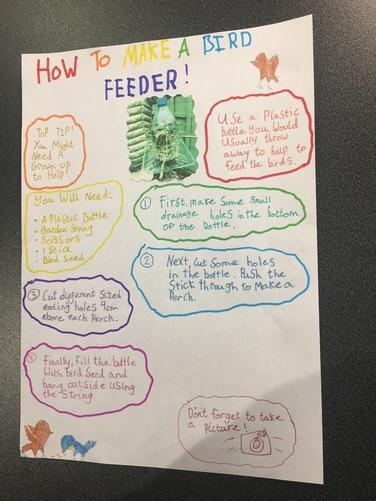 HOW TO MAKE A BIRD
FEEDER!
Top TIP!
You Might
Need A
Grown up
to Help!
Use a Plastic
bottle you would
usually throw
away to help to
feed the birds.
You Will Need:
• A Plastic Bottle
• Garden String
• Scissors
• 1 Stick
• Bird Seed
1 First, make some small
drainage holes in the bottom
of the bottle.
2 Next, cut some holes
in the bottle. Push the
stick through to make a
Perch.
3 Cut different sized
eating holes 4cm
above each Perch.
4 Finally, fill the bottle
with bird seed and
hang outside using
the string.
Don't forget to take
a picture!